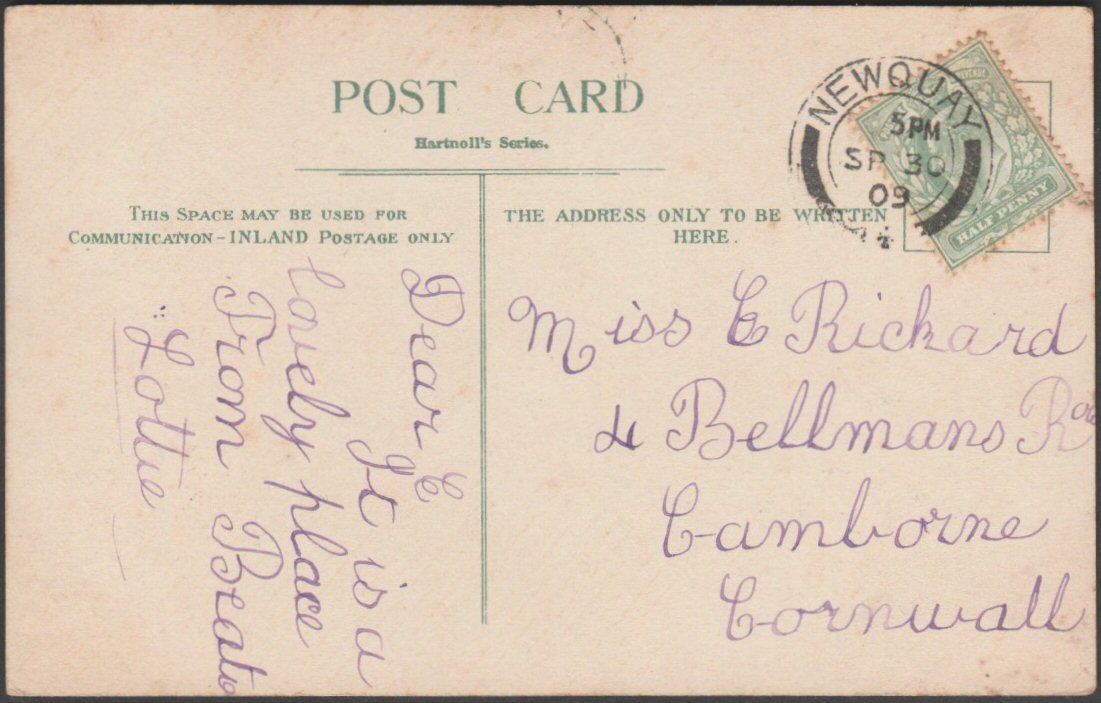 POST CARD
Hartnoll's Series.
THIS SPACE MAY BE USED FOR
COMMUNICATION - INLAND POSTAGE ONLY
THE ADDRESS ONLY TO BE WRITTEN
HERE.
NEWQUAY
5 PM
SP 30
09
HALF PENNY
Dear E
It is a
lovely place
From
Lottie
Miss E Rickard
4 Bellmans
Camborne
Cornwall